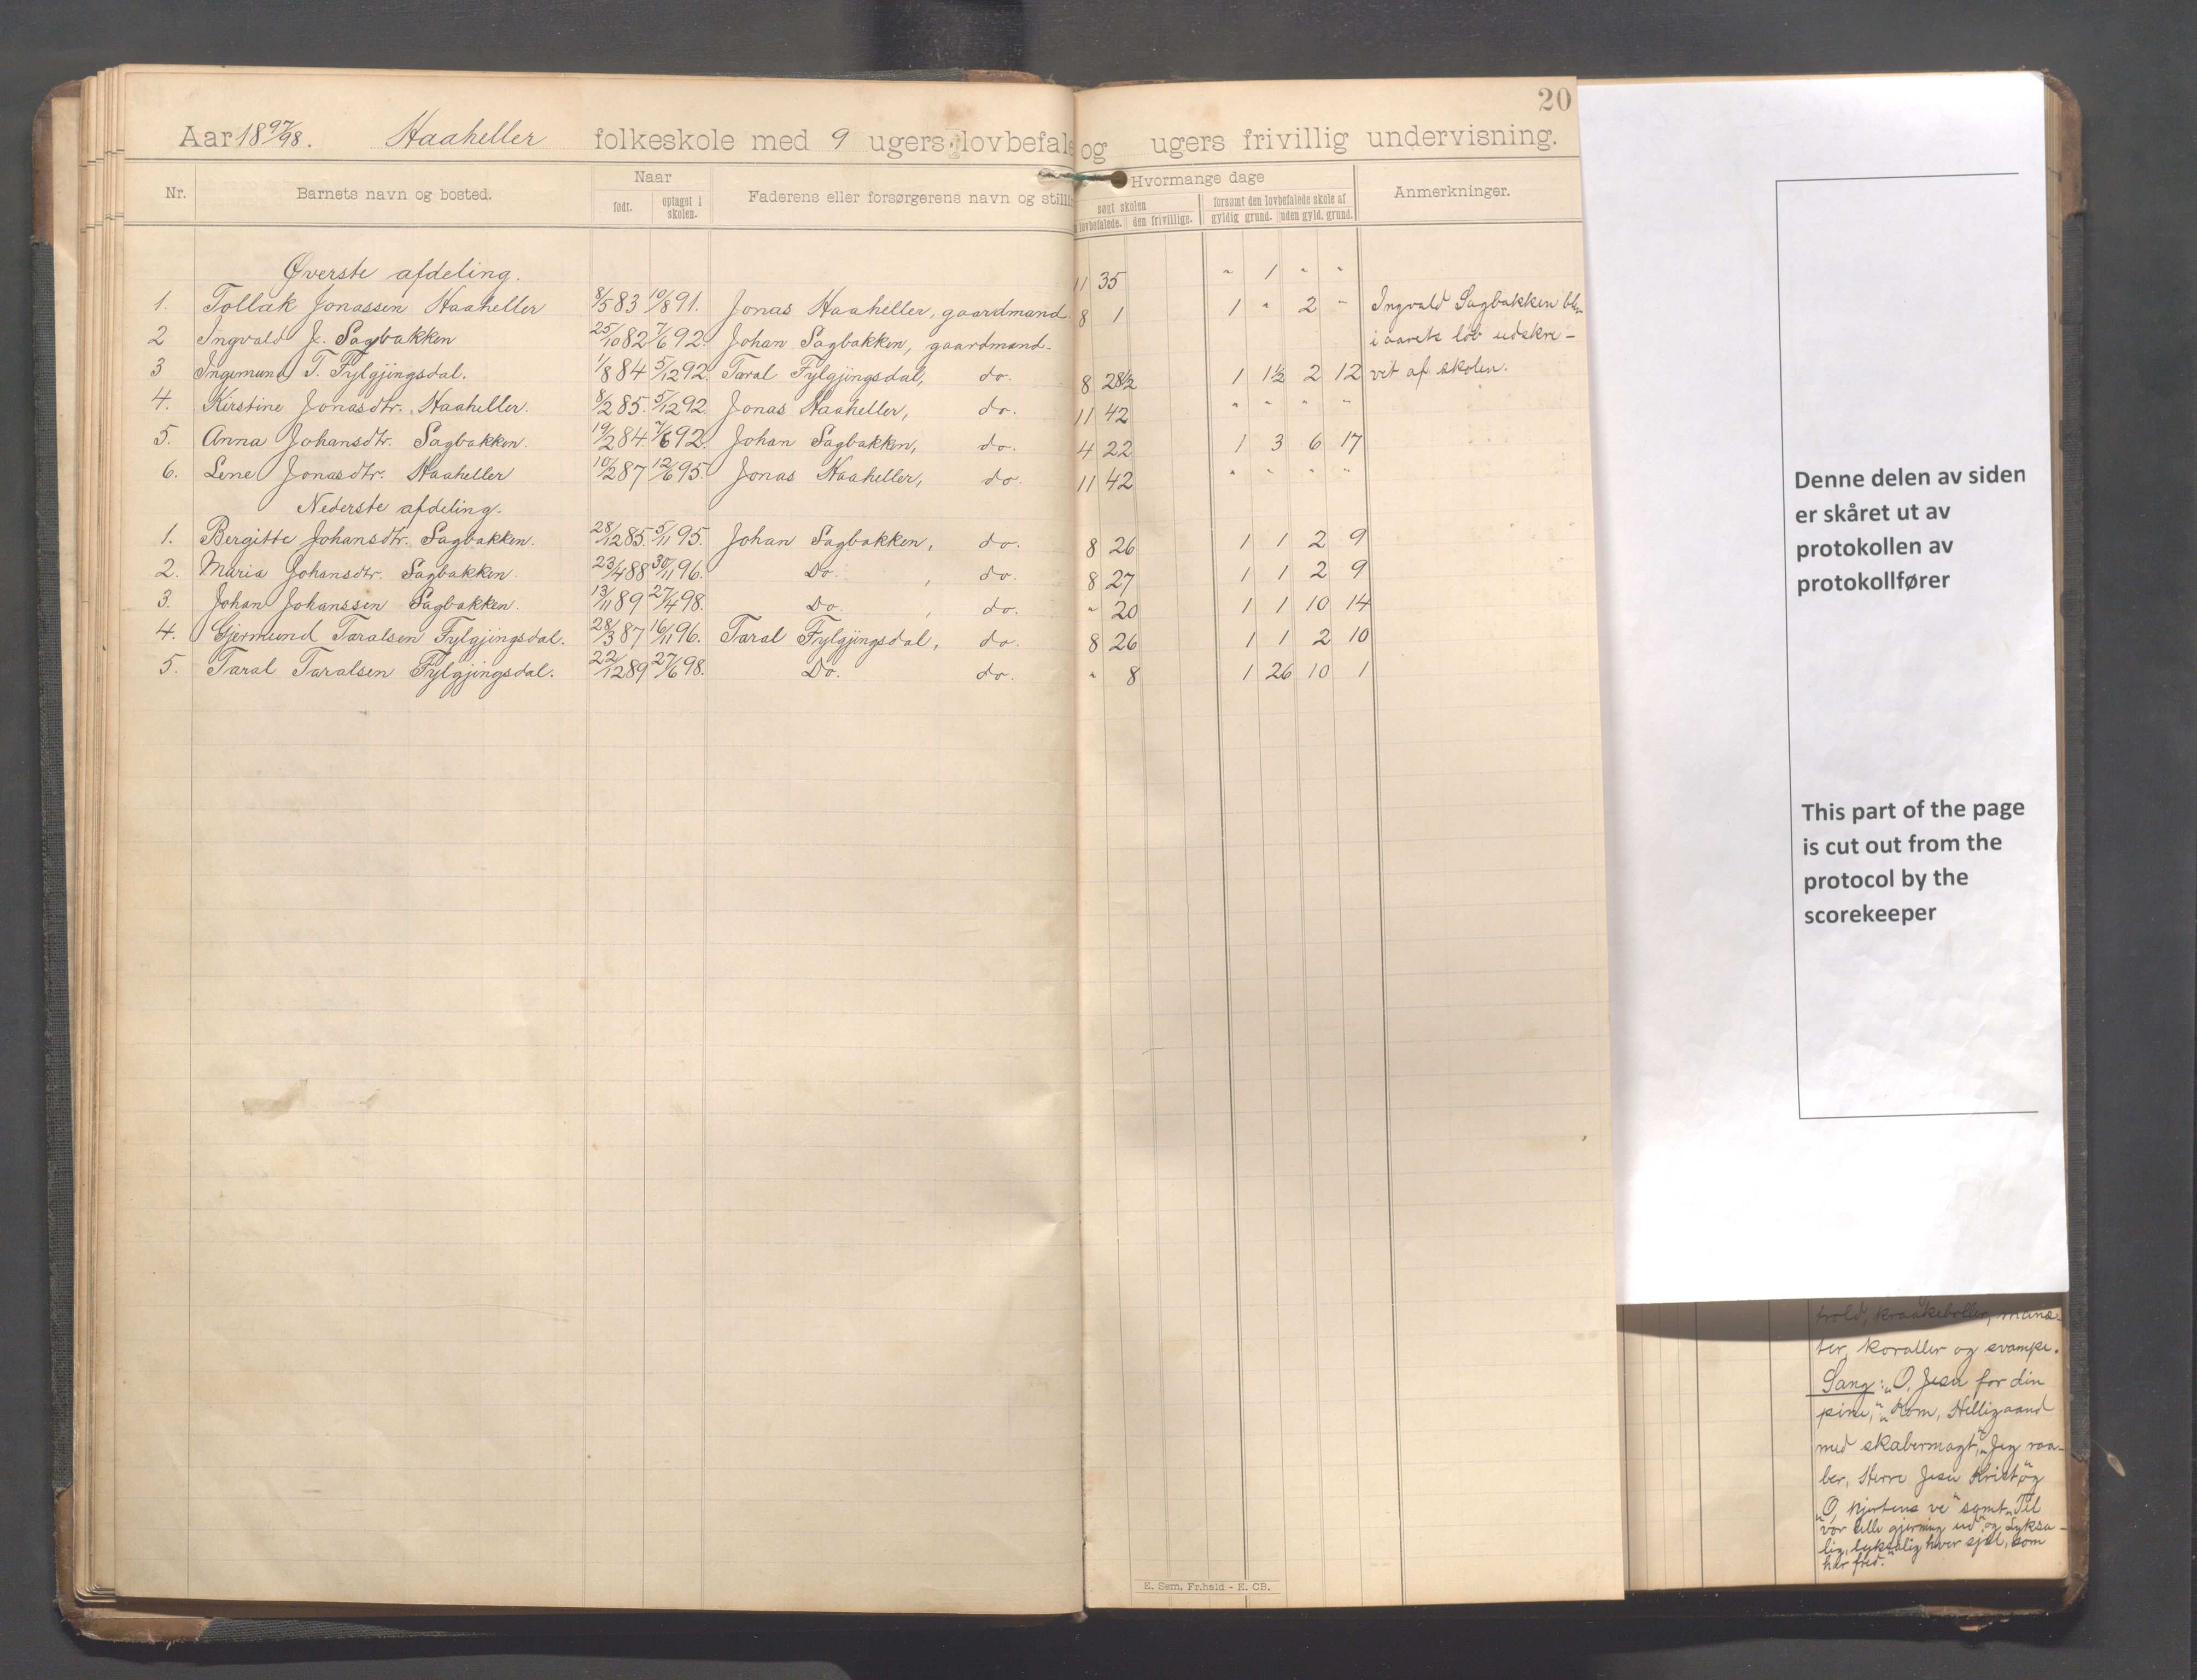 20
Aar 18 97/98. Haaheller folkeskole med 9 ugers lovbefale og ugers frivillig undervisning.
Nr. Barnets navn og bosted. Naar Faderens eller forsørgerens navn og stilli Hvormange dage Anmerkninger.
født. optaget i skolen. søgt skolen forsømt den lovbefalede skole af
lovbefalede. den frivillige. gyldig grund. uden gyld. grund.
Øverste afdeling.
1. Tollak Jonassen Haaheller 8/5 83 10/8 91. Jonas Haaheller, gaardmand. 11 35 " 1 " "
2 Ingvald J. Sagbakken 25/10 82 7/6 92. Johan Sagbakken, gaardmand. 8 1 1 " 2 " Ingvald Sagbakken blev
i aarets løb udskre-
3 Ingemund T. Fylgjingsdal. 1/8 84 5/12 92. Taral Fylgjingsdal, do. 8 28½ 1 1½ 2 12 vet af skolen.
4. Kirstine Jonasdtr. Haaheller. 8/2 85. 5/12 92. Jonas Haaheller, do. 11 42 " " " "
5. Anna Johansdtr. Sagbakken. 19/2 84 7/6 92. Johan Sagbakken, do. 4 22 1 3 6 17
6. Lene Jonasdtr. Haaheller 10/2 87 12/6 95. Jonas Haaheller, do. 11 42 " " " "
Nederste afdeling.
1. Bergitte Johansdtr. Sagbakken. 28/12 85. 5/11 95. Johan Sagbakken, do. 8 26 1 1 2 9
2. Maria Johansdtr. Sagbakken. 23/4 88 30/11 96. Do. , do. 8 27 1 1 2 9
3. Johan Johanssen Sagbakken. 13/11 89 27/4 98. Do. , do. " 20 1 1 10 14
4. Gjermund Taralsen Fylgjingsdal. 28/3 87 16/11 96. Taral Fylgjingsdal, do. 8 26 1 1 2 10
5. Taral Taralsen Fylgjingsdal. 22/12 89 27/6 98. Do. do. " 8 1 26 10 1
E. Sem. Fr.hald - E. CB.
Denne delen av siden
er skåret ut av
protokollen av
protokollfører
This part of the page
is cut out from the
protocol by the
scorekeeper
trold, kraakeboller, manæ-
ter, koraller og svampe.
Sang: „O, Jesu for din
pine," „Kom, Helligaand
med skabermagt," „Jeg raa-
ber, Herre Jesu Krist" og
„O, hjertens ve" samt „Til
vor lille gjerning ud" og „Lyksa-
lig, lyksalig hver sjæl, som
har fred."